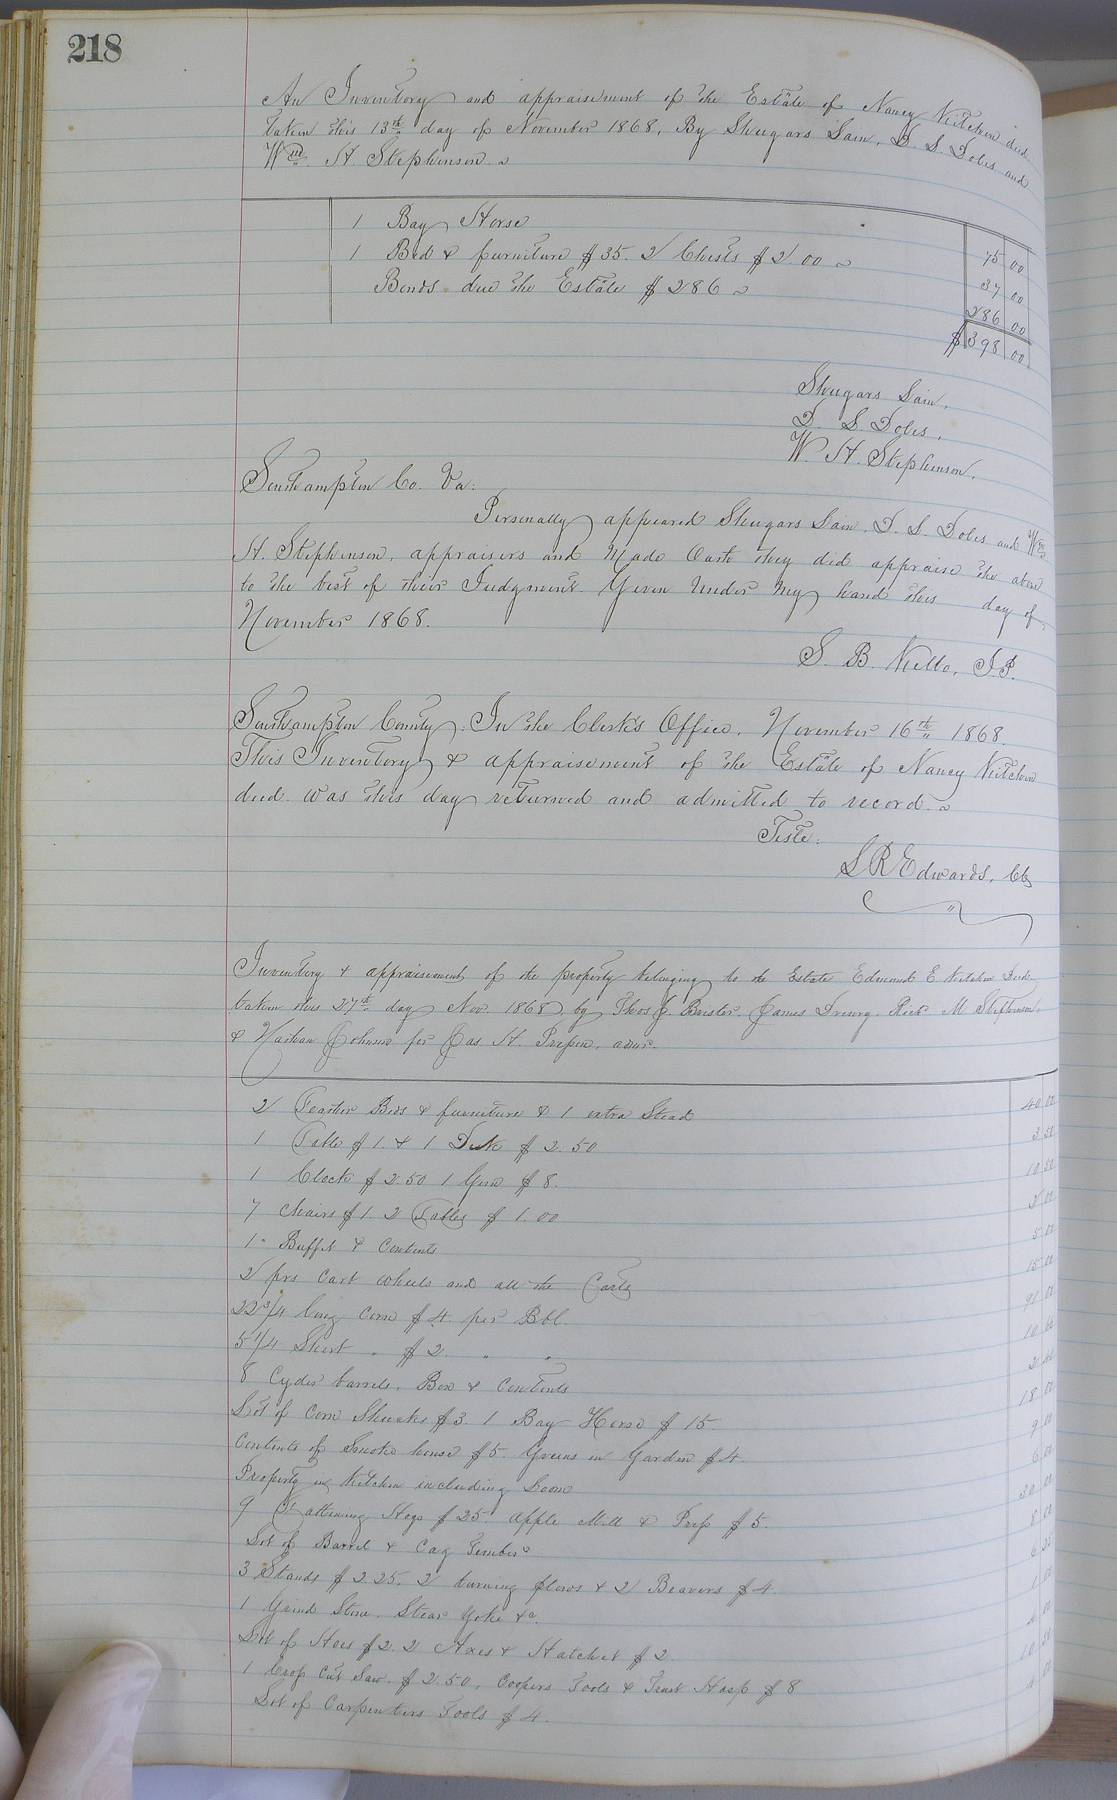 218
An Inventory and appraisement of the Estate of Nancy decd
taken this 13th day of November 1868, By Shugars Lain, D. S. Doles and
Wm. H. Stephenson
1 Bay Horse 75 00
1 Bed & furniture $35. 2 Chests $2.00 37 00
Bonds due the Estate $286 286 00
$398 00
Shugars Lain,
D. S. Doles,
W. H. Stephenson,
Southampton Co. Va:
Personally appeared Shugars Lain, D. S. Doles and Wm
H. Stephenson, appraisers and Made Oath they did appraise the above
to the best of their Judgment. Given Under My hand this day of
November 1868.
S. B. J.P.
Southampton County: In the Clerk's Office, November 16th 1868
This Inventory & appraisement of the Estate of Nancy
decd. was this day returned and admitted to record.
Teste:
L R Edwards, Clk
Inventory & appraisement of the property belonging to the Estate Edmund E. Decd.
taken this 27th day Nov. 1868 by Thos J. James Drewry, Rich M Stephenson,
& Nathan Johnson for Jas H. admr.
2 Feather Beds & furniture & 1 extra Stead 40 00
1 Table $1. & 1 Desk $2.50 3 50
1 Clock $2.50 1 Gun $8. 10 50
7 Chairs $1. 2 Tables $1.00 2 00
1 Buffet & Contents 5 00
2 prs Cart wheels and all the Carts 15 00
22 3/4 long Corn $4. per Bbl. 91 00
5 1/4 Short " $2. " " 10 50
8 Cyder barrels, Box & Contents
Lot of Corn Shucks $3. 1 Bay Horse $15. 18 00
Contents of Smoke house $5. Greens in Garden $4. 9 00
Property in Kitchen including Loom 6 00
9 Fattening Hogs $25. Apple Mill & Press $5. 30 00
Lot of Barrel & Cag Timber 8 00
3 Stands $2.25. 2 turning plows & 2 Beavers $4. 6 25
1 Grind Stone, Stear Yoke &c. 1 00
Lot of Hoes $2. 2 Axes & Hatchet $2. 4 00
1 Crop Cut Saw. $2.50, Coopers Tools & Trust Hoop $8 10 50
Lot of Carpenters Tools $4. 4 00